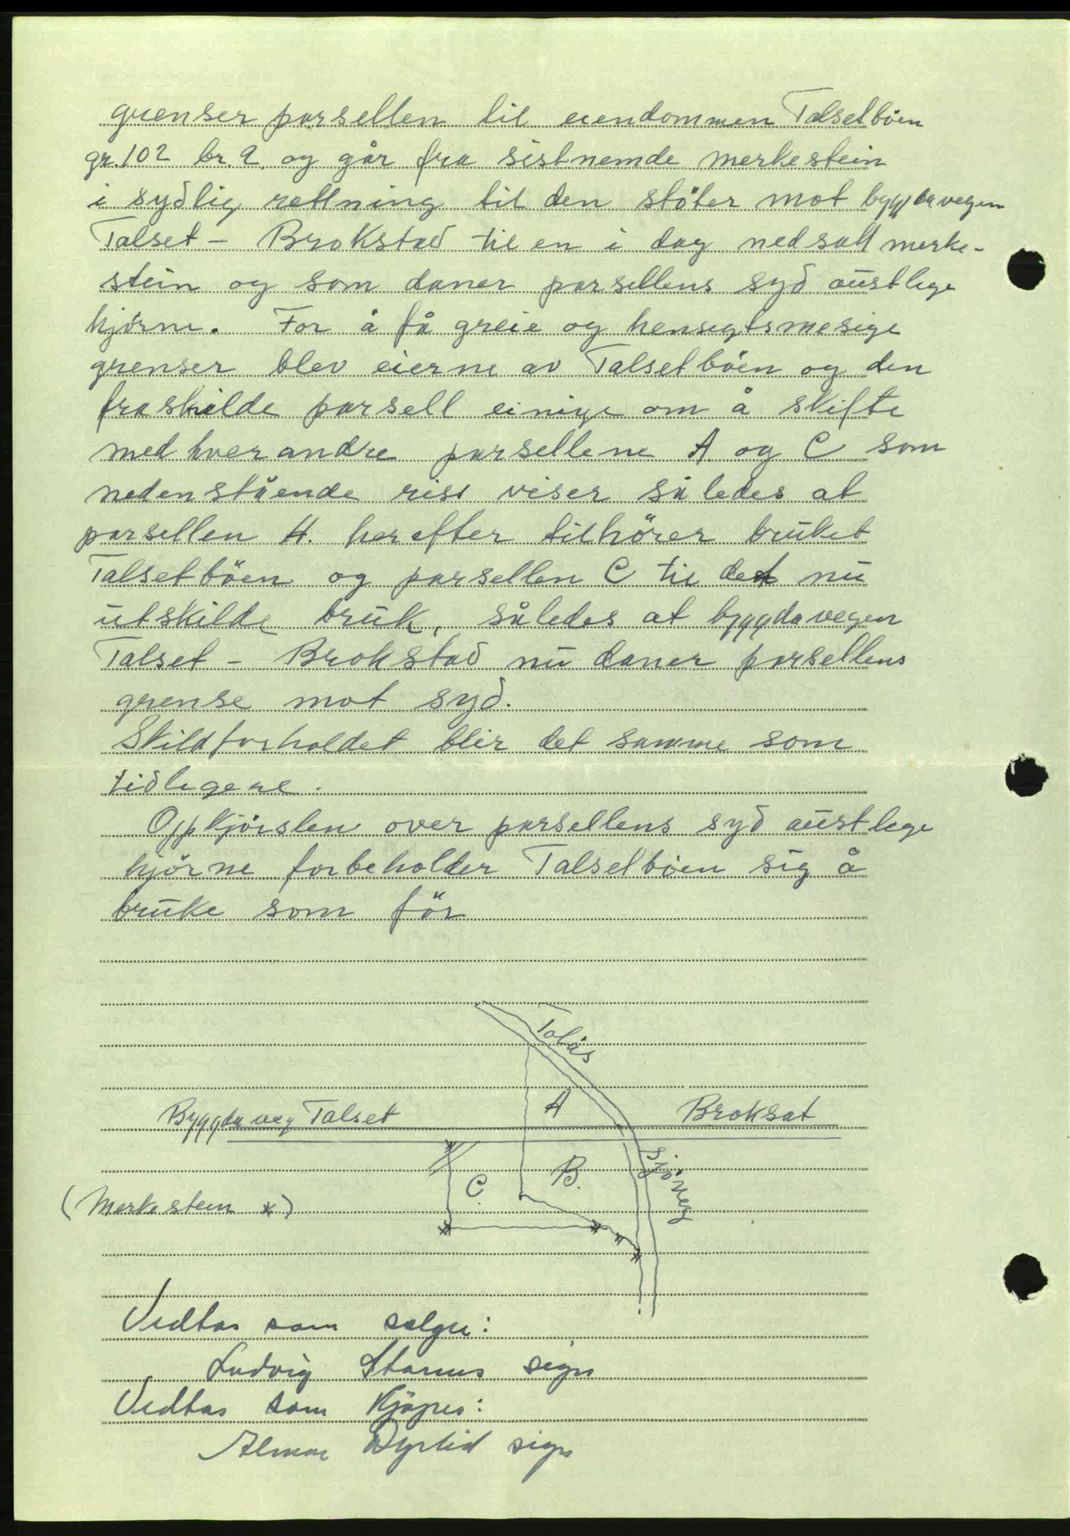 grenser parsellen til eiendommen Talsetböen
gr. 102 br. 2. og går fra sistnemde merkestein
i sydlig rettning til den stöter mot byggdavegen
Talset - Brokstad til en i dag nedsatt merke-
stein og som daner parsellens syd austlege
hjörne. For å få greie og hensegtsmesige
grenser blev eierne av Talsetböen og den
fraskilde parsell einige om å skifte
med hverandre parsellene A og C som
nedenstående riss viser således at
parsellen A. herefter tilhörer bruket
Talsetböen og parsellen C til det nu
utskilde bruk, således at byggdavegen
Talset - Brokstad nu daner parsellens
grense mot syd.
Skildforholdet blir det samme som
tidligere.
Oppkjörslen over parsellens syd austlege
hjörne forbeholder Talsetböen sig å
bruke som för
Talås
A
Byggdaveg Talset Broksat
Sjöveg
C. B.
(Merkestein *)
Vedtas som selger:
Ludvig sign
Vedtas som Kjöper:
Almar Dyrlid sign